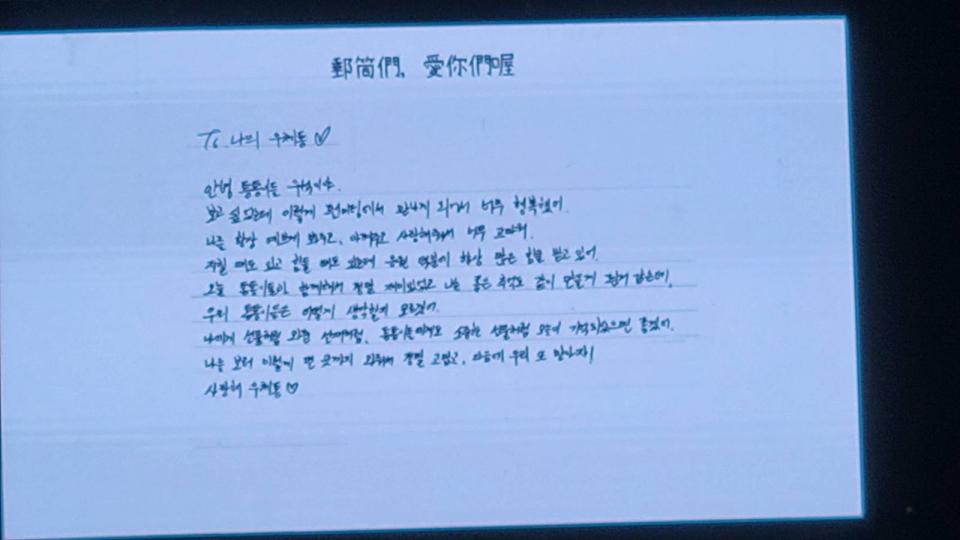 郵筒們, 愛你們喔
To 나의 우체통♡
안녕 통통이들
보고 싶었는데 이렇게 팬미팅에서 만나게 되어서 너무 행복했어.
나를 항상 예쁘게 봐주고, 아껴주고 사랑해줘서 너무 고마워.
지칠 때도 있고 힘들 때도 있는데 응원 덕분에 항상 많은 힘을 받고 있어.
오늘 통통이들과 함께해서 정말 재미있었고 나는 좋은 추억도 같이 만들게 된거 같은데,
우리 통통이들은 어떻게 생각할지 모르겠어.
나에게 선물처럼 와준 선재처럼, 통통이들에게도 소중한 선물처럼 오늘이 기억되었으면 좋겠어.
나를 보러 이렇게 먼 곳까지 와줘서 정말 고맙고, 다음에 우리 또 만나자!
사랑해 우체통♡